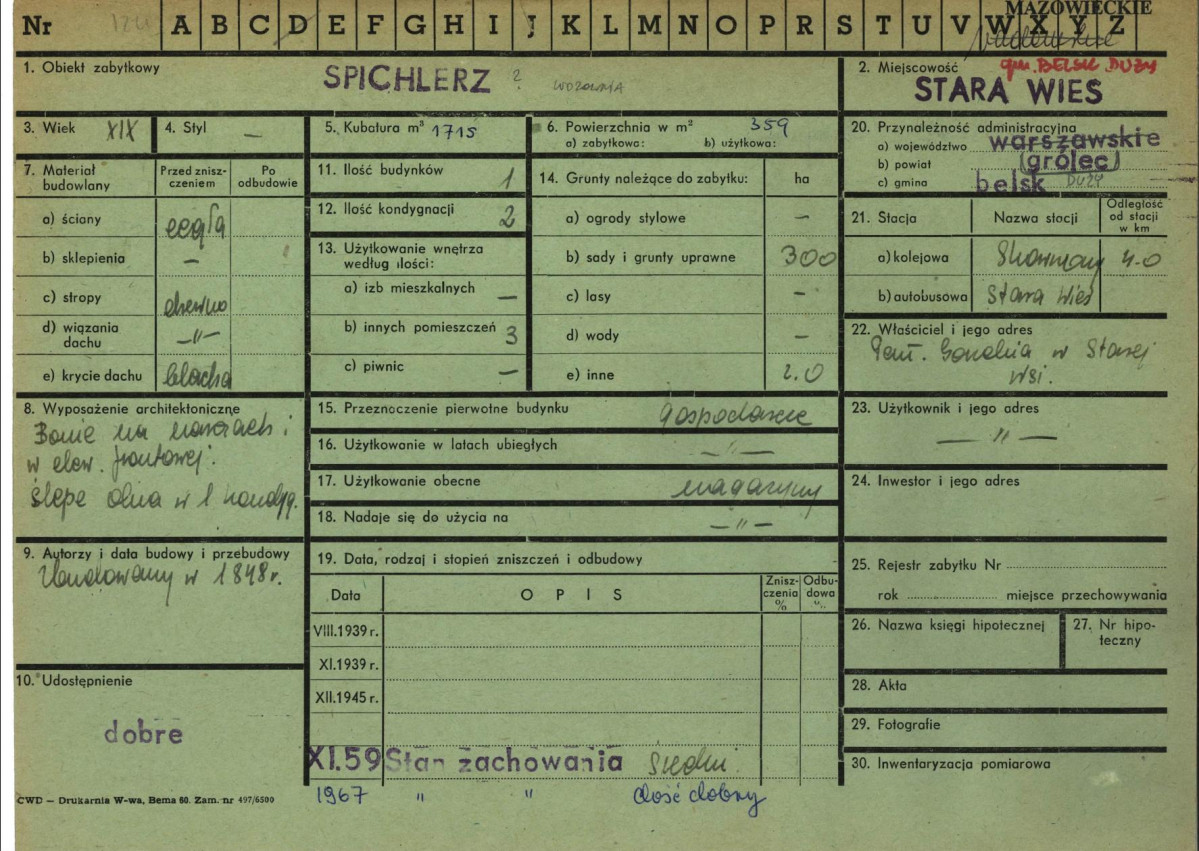 MAZOWIECKIE
Nr A B C D E F G H I J K L M N O P R S T U V W X Y Z
1. Obiekt zabytkowy
SPICHLERZ ? WOZOWNIA
2. Miejscowość
gm. BELSK DUŻY
STARA WIES
3. Wiek XIX
4. Styl —
5. Kubatura m³ 1715
6. Powierzchnia w m² 359
a) zabytkowa: b) użytkowa:
7. Materiał budowlany
Przed zniszczeniem
Po odbudowie
a) ściany cegła
b) sklepienia —
c) stropy drewno
d) wiązania dachu —"—
e) krycie dachu blacha
8. Wyposażenie architektoniczne
Bonie na narożach i
w elew. frontowej.
ślepe okna w I kondyg.
9. Autorzy i data budowy i przebudowy
Zbudowany w 1848 r.
10. Udostępnienie
dobre
11. Ilość budynków 1
12. Ilość kondygnacji 2
13. Użytkowanie wnętrza
według ilości:
a) izb mieszkalnych —
b) innych pomieszczeń 3
c) piwnic —
14. Grunty należące do zabytku: ha
a) ogrody stylowe —
b) sady i grunty uprawne 300
c) lasy —
d) wody —
e) inne 2.0
15. Przeznoczenie pierwotne budynku gospodarcze
16. Użytkowanie w latach ubiegłych —"—
17. Użytkowanie obecne magazyny
18. Nadaje się do użycia na —"—
19. Data, rodzaj i stopień zniszczeń i odbudowy
Data
OPIS
Zniszczenia %
Odbudowa %
VIII.1939 r.
XI.1939 r.
XII.1945 r.
XI.59 Stan zachowania średni.
1967 " " dość dobry
20. Przynależność administracyjna
a) województwo warszawskie
b) powiat (grójec)
c) gmina belsk DUŻY
21. Stacja
Nazwa stacji
Odległość od stacji w km
a) kolejowa 4.0
b) autobusowa Stara Wieś
22. Właściciel i jego adres
w Starej
Wsi.
23. Użytkownik i jego adres
—"—
24. Inwestor i jego adres
25. Rejestr zabytku Nr
rok miejsce przechowywania
26. Nazwa księgi hipotecznej
27. Nr hipoteczny
28. Akta
29. Fotografie
30. Inwentaryzacja pomiarowa
CWD — Drukarnia W-wa, Bema 60. Zam. nr 497/6500